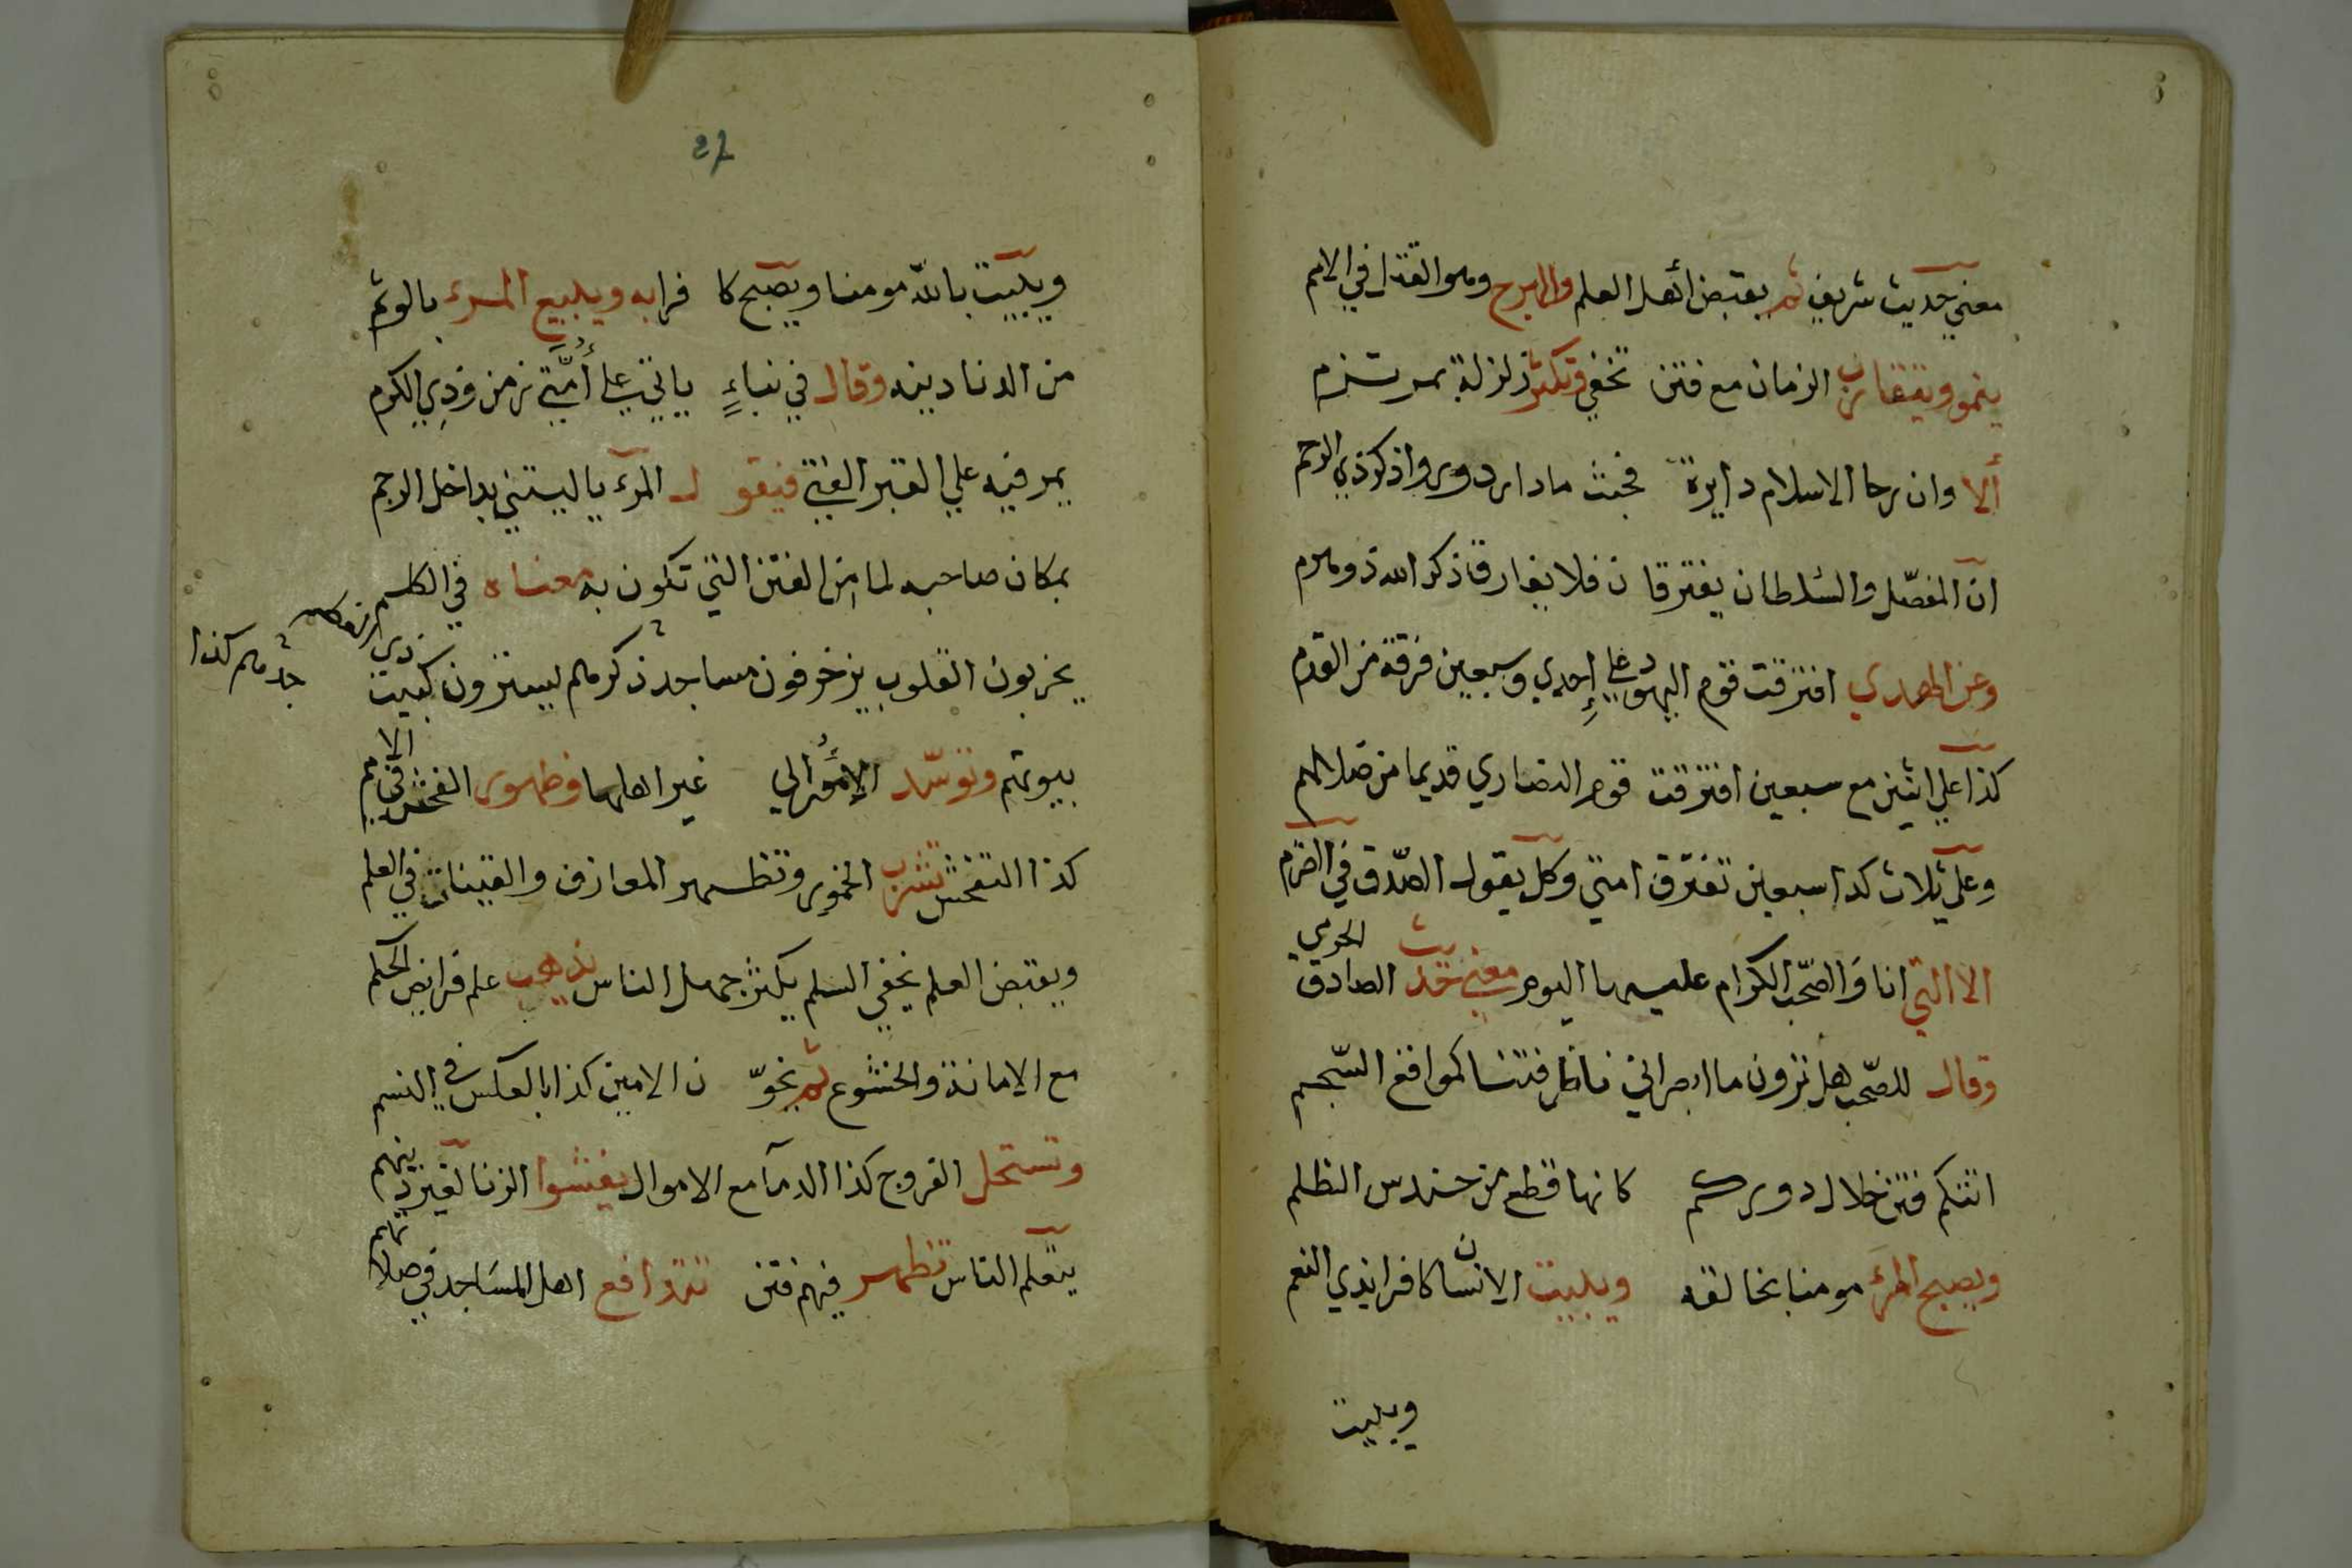 معني حديث شريف ثم يقبض أهل العلم والهرج وهو القتل في الامم
ينمو ويتقارب الزمان مع فتن تخفي وتكثر زلزلة
ألا وان رحا الاسلام دايرة فحيث مادار دوروا ذكر ذي الرحم
ان المفصّل والسلطان يفترقا ن فلا يفارق ذكر الله ذو
وعن الهدي افترقت قوم اليهود علي إحدي وسبعين فرقة من القدم
كذا علي اثنين مع سبعين افترقت قوم النصاري قديما من ضلالهم
وعلى ثلاث كدا سبعين تفترق امتي وكل يقول الصّدق في
الا التي انا والصّحب الكرام عليها اليوم معني حديث الصادق الحرمي
وقال للصّحب هل ترون ما ابصر اني ناظر فتنا كمواقع السّجم
اتتكم فتن خلال دوركم كانها قطع من حندس الظلم
ويصبح المرء مومنا بخالقه ويبيت الانسان كافرا بذي النعم
ويبيت
27
ويبيت بالله مومنا ويصبح كا فرا به ويبيع المرء بالوثم
من الدنا دينه وقال في نباءٍ ياتي علي أُمّتي زمن وَذِي الكرم
يمر فيه علي القبر الفتي فيقو ل المرء يا ليتني بداخل الرجم
بمكان صاحبه لما من الفتن التي تكون به معناه في الكلم
يخربون القلوب يزخرفون مساجد ذكرهم يسترون كبيت ذي
جدهم كذا
بيوتهم وتوسّد الامُور الي غير اهلها وظهور الفحش في الامم
كذا التفحش تشرب الخمور وتظهر المعازف والقينات في العلم
ويقبض العلم يخفي السلم يكثر جهل الناس يذهب علم فرايض الحكم
مع الامانة والخشوع ثم يخوّ ن الامين كذا بالعكس في النسم
وتستحل الفروج كذا الدمآ مع الاموال يفشوا الزنا لغير دينهم
يتعلم الناس تظهر فيهم فتن تتدافع اهل المسَاجد في صلاتهم